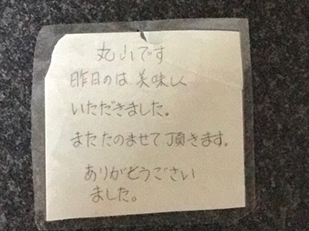 丸山です
昨日のは美味しく
いただきました。
またたのませて頂きます。
ありがとうござい
ました。